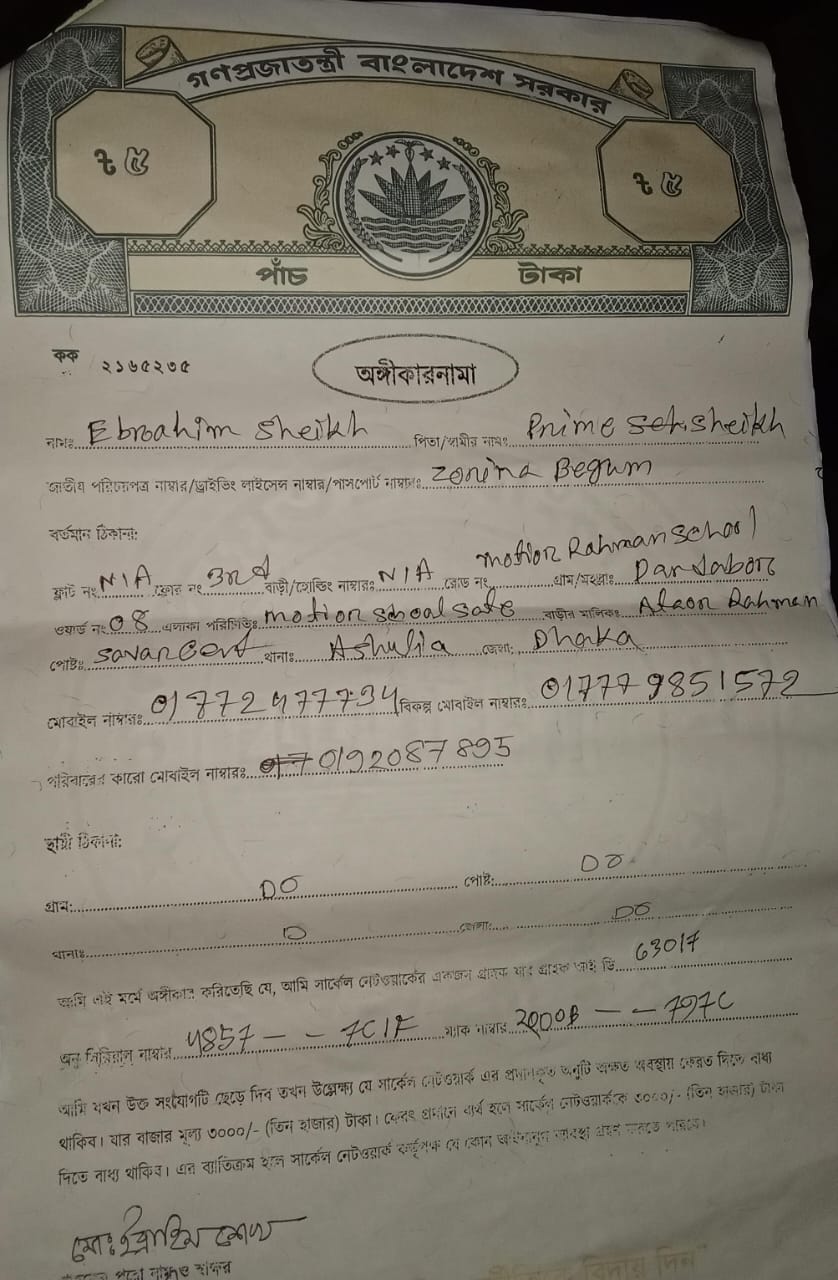 গণপ্রজাতন্ত্রী বাংলাদেশ সরকার
৳ ৫ ৳ ৫
পাঁচ টাকা
কক ২১৬৫২৩৫
অঙ্গীকারনামা
নামঃ Ebroahim Sheikh পিতা/স্বামীর নামঃ Prime Sek. Sheikh
জাতীয় পরিচয়পত্র নাম্বার/ড্রাইভিং লাইসেন্স নাম্বার/পাসপোর্ট নাম্বারঃ Zorina Begum
বর্তমান ঠিকানা:
ফ্লাট নং N/A ফ্লোর নং 3rd বাড়ী/হোল্ডিং নাম্বারঃ N/A রোড নং motior Rahman School গ্রাম/মহল্লাঃ
ওয়ার্ড নং 08 এলাকা পরিচিতিঃ motior School বাড়ীর মালিকঃ Rahman
পোষ্টঃ Savar Cent থানাঃ Ashulia জেলা: Dhaka
মোবাইল নাম্বারঃ 01772477734 বিকল্প মোবাইল নাম্বারঃ 017779851572
পরিবারের কারো মোবাইল নাম্বারঃ 0192087895
স্থায়ী ঠিকানা:
গ্রাম: DO পোষ্ট: DO
থানাঃ D জেলা: DO
আমি এই মর্মে অঙ্গীকার করিতেছি যে, আমি সার্কেল নেটওয়ার্কের একজন গ্রাহক যার গ্রাহক আই ডি 63017
অনু সিরিয়াল নাম্বার 4857 - - 7C1F ম্যাক নাম্বার - - 797C
আমি যখন উক্ত সংযোগটি ছেড়ে দিব তখন উল্লেখ্য যে সার্কেল নেটওয়ার্ক এর প্রদানকৃত অনুটি অক্ষত অবস্থায় ফেরত দিতে বাধ্য
থাকিব। যার বাজার মূল্য ৩০০০/- (তিন হাজার) টাকা। ফেরৎ প্রদানে ব্যর্থ হলে সার্কেল নেটওয়ার্ককে ৩০০০/- (তিন হাজার) টাকা
দিতে বাধ্য থাকিব। এর ব্যতিক্রম হলে সার্কেল নেটওয়ার্ক কর্তৃপক্ষ যে কোন আইনানুগ ব্যবস্থা গ্রহণ করতে পারবে।
মোঃ ইব্রাহিম শেখ